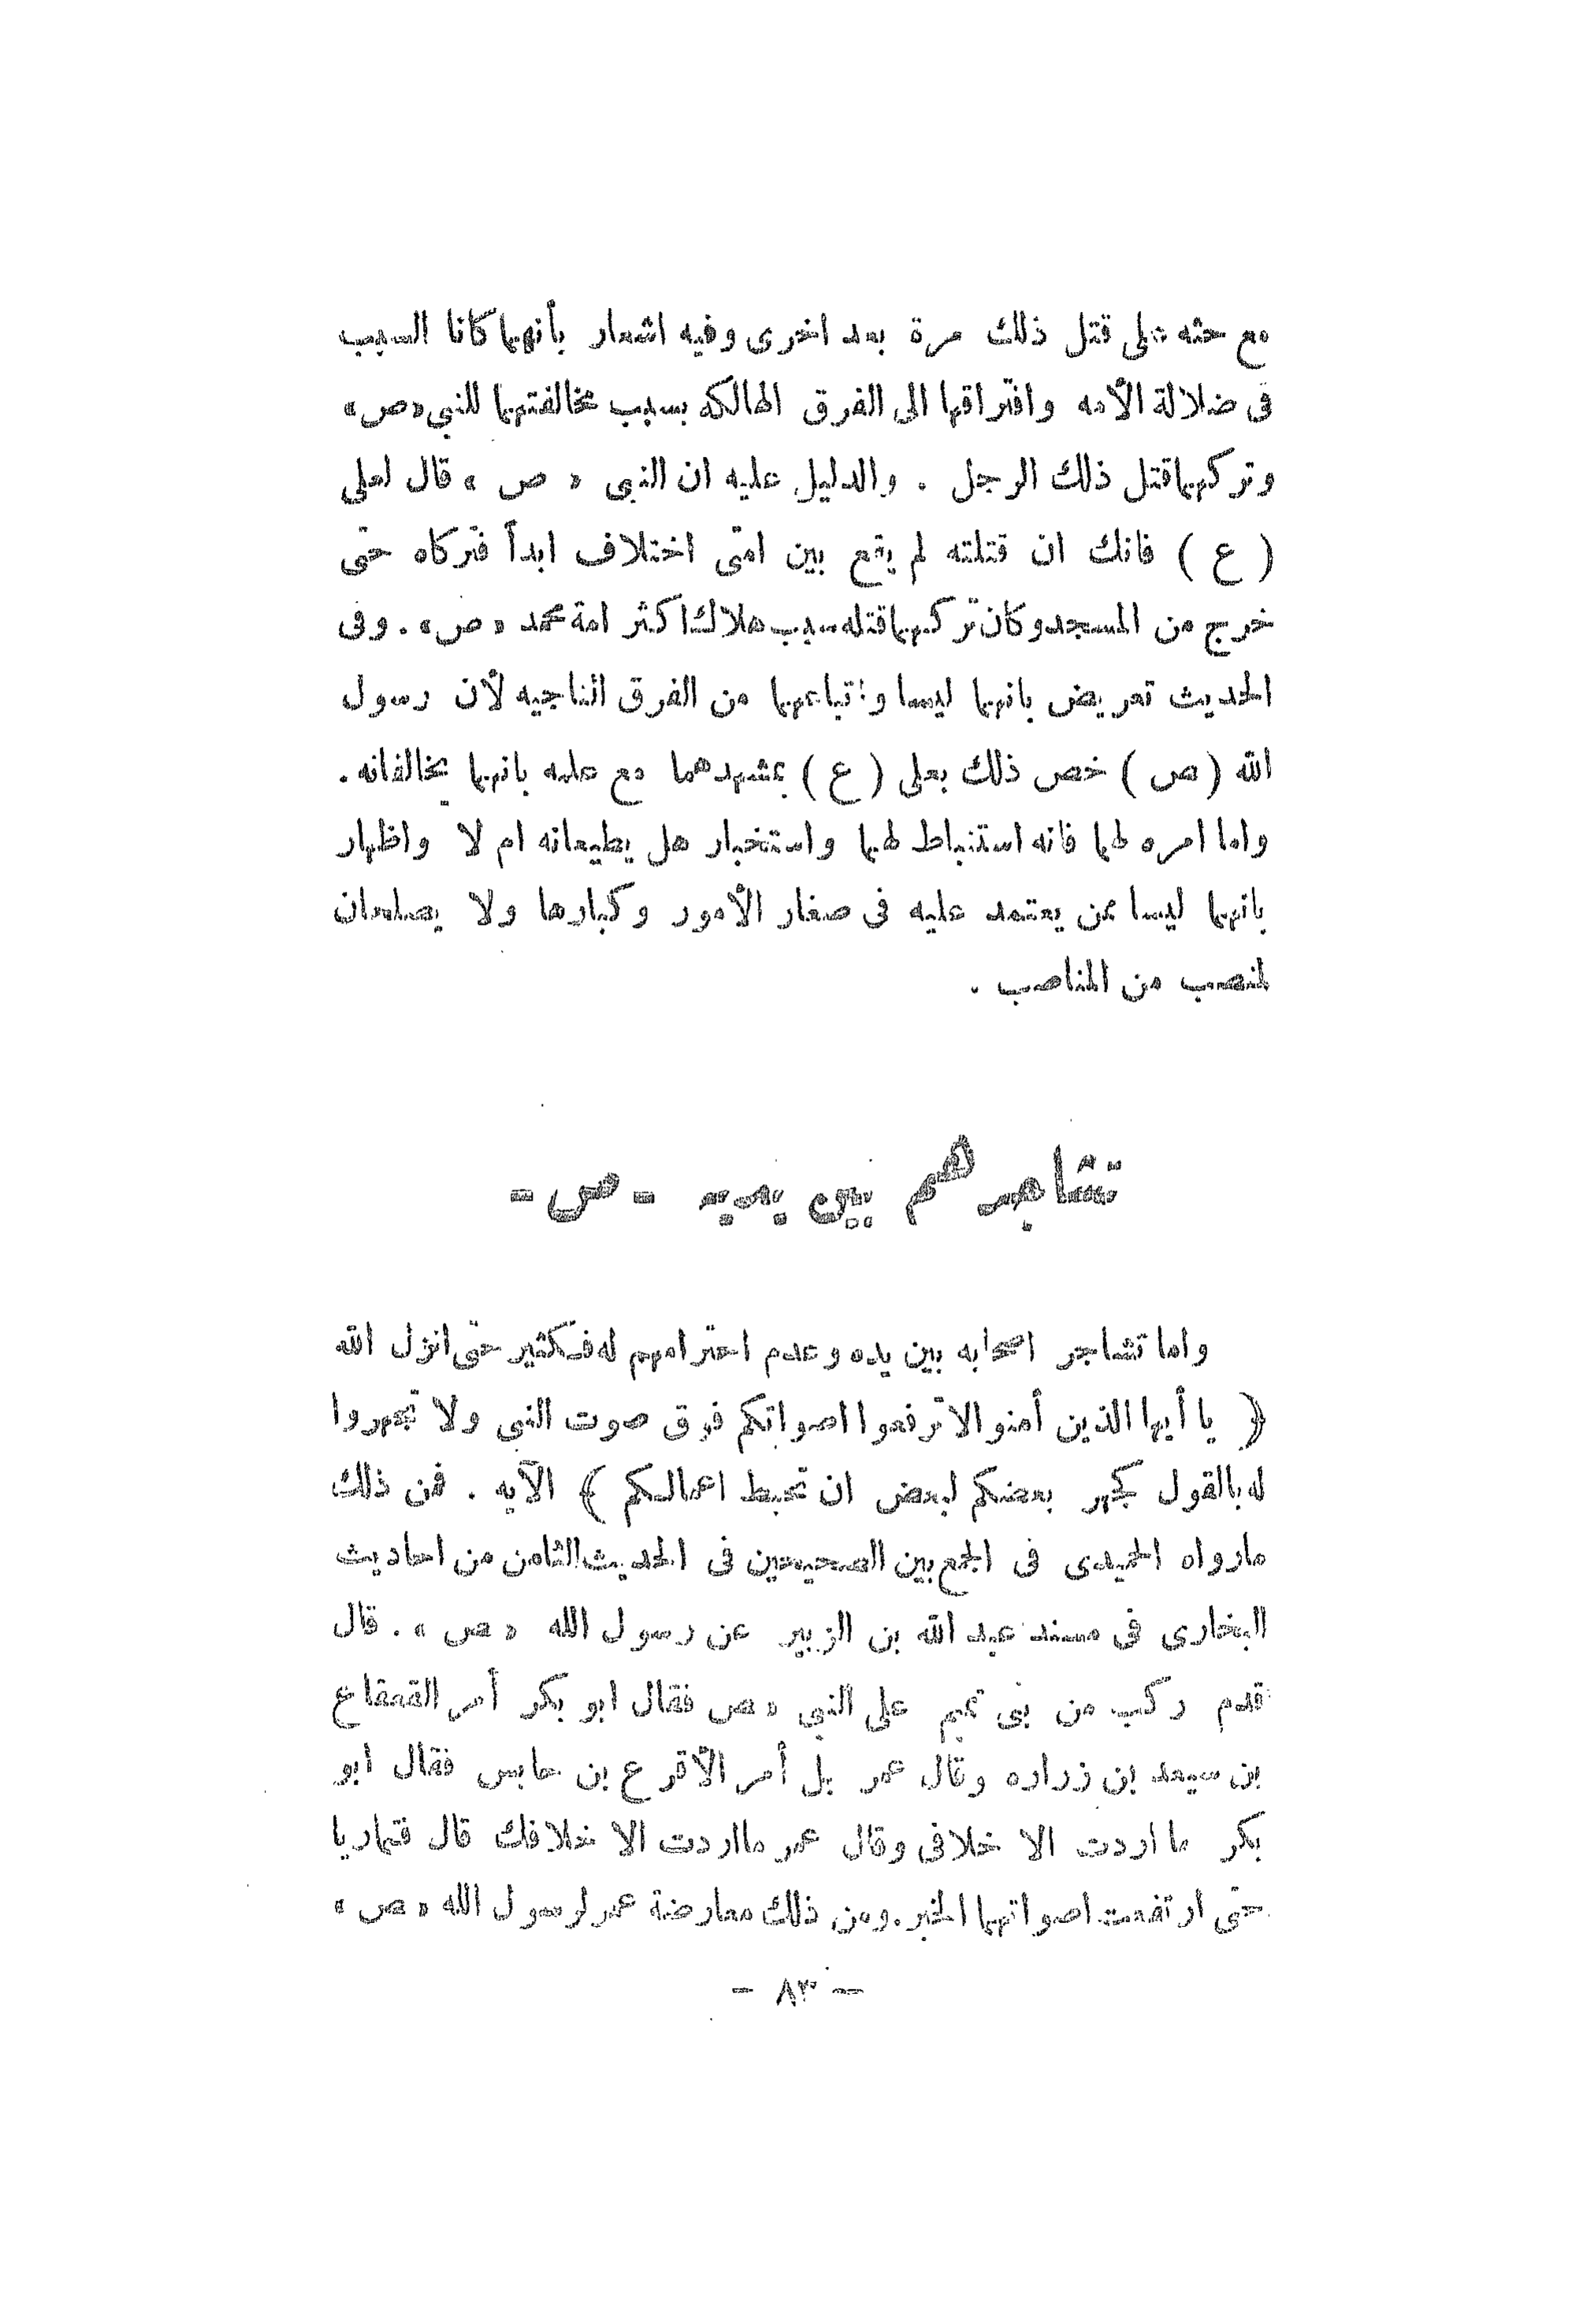 مع حثه على قتل ذلك مرة بعد اخرى وفيه اشعار بأنهما كانا السبب
فى ضلالة الأمه وافتراقها الى الفرق الهالكه بسبب مخالفتهما للنبي «ص»
وتركهما قتل ذلك الرجل . والدليل عليه ان النبى « ص » قال لعلى
( ع ) فانك ان قتلته لم يقع بين امتى اختلاف ابداً فتركاه حتى
خرج من المسجد وكان تركهما قتله سبب هلاك اكثر امة محمد «ص» . وفى
الحديث تعريض بانهما ليسا واتباعهما من الفرق الناجيه لأن رسول
الله ( ص ) خص ذلك بعلى ( ع ) بمشهدهما مع علمه بانهما يخالفانه .
واما امره لهما فانه استنباط لهما واستخبار هل يطيعانه ام لا واظهار
بانهما ليسا ممن يعتمد عليه فى صغار الأمور وكبارها ولا يصلحان
لمنصب من المناصب .
تشاجرهم بين يديه - ص -
واما تشاجر اصحابه بين يده وعدم احترامهم له فكثير حتى انزل الله
﴿ يا أيها الذين أمنو الا ترفعوا اصواتكم فوق صوت النبى ولا تجهروا
له بالقول كجهر بعضكم لبعض ان تحبط اعمالكم ﴾ الآيه . فمن ذلك
مارواه الحميدى فى الجمع بين الصحيحين فى الحديث الثامن من احاديث
البخارى فى مسند عبد الله بن الزبير عن رسول الله « ص » . قال
قدم ركب من بنى تميم على النبى « ص فقال ابو بكر أمر القعقاع
بن سعيد بن زراره وقال عمر بل أمر الأقرع بن حابس فقال ابو
بكر ما اردت الا خلافى وقال عمر ما اردت الا خلافك قال فتماريا
حتى ارتفعت اصواتهما الخبر . ومن ذلك معارضة عمر لرسول الله « ص »
— ٨٣ —